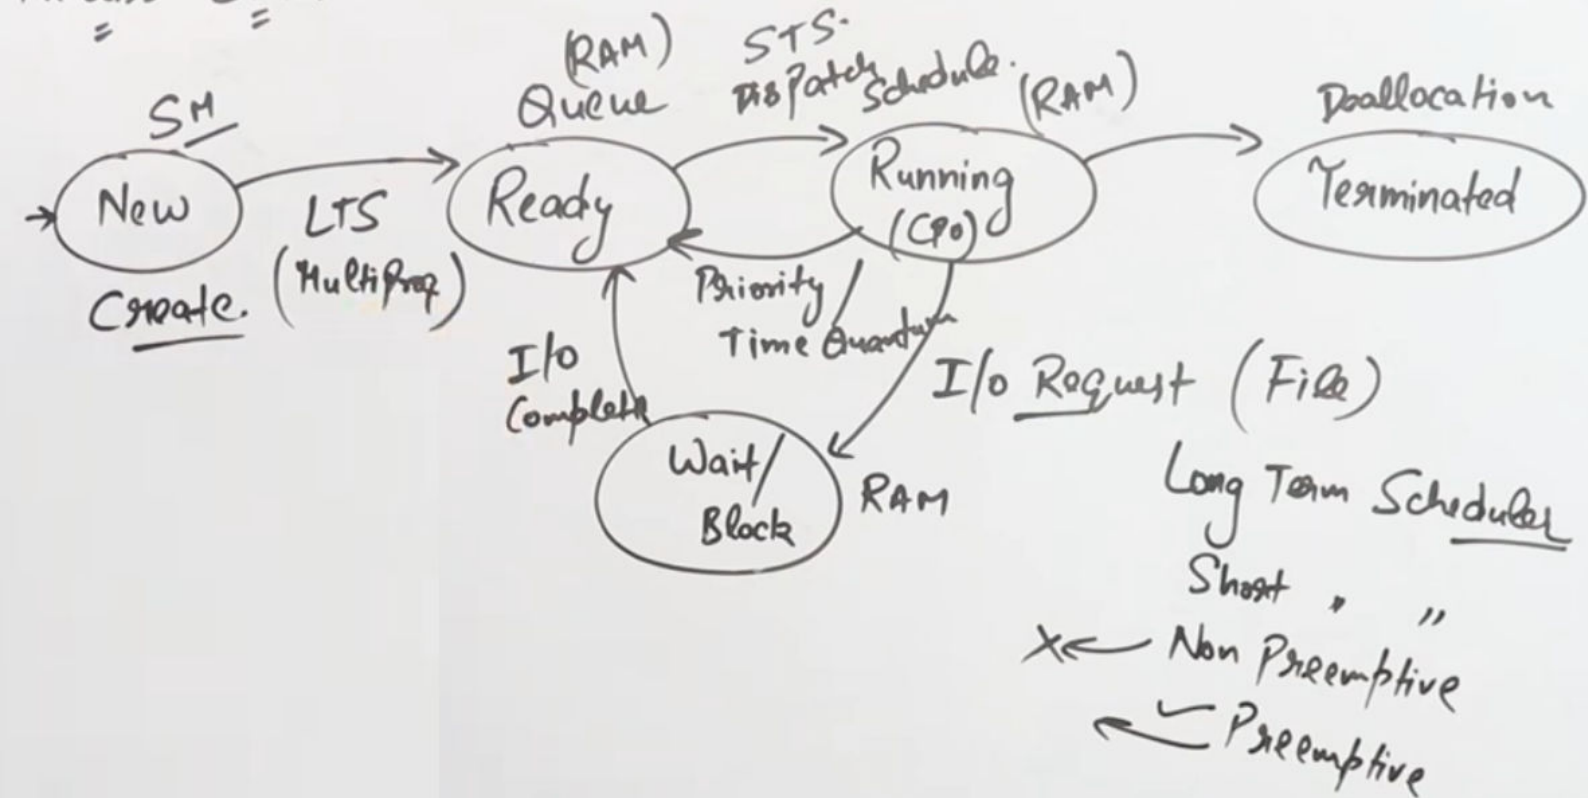 SM
New
Create.
LTS
(MultiProg)
(RAM)
Queue
Ready
STS.
Dispatch Schedule.
(RAM)
Running
(CPU)
Priority /
Time Quantum
Deallocation
Terminated
I/O
Complete
I/O Request (File)
Wait/
Block
RAM
Long Term Scheduler
Short " "
X ← Non Preemptive
← ✓ Preemptive